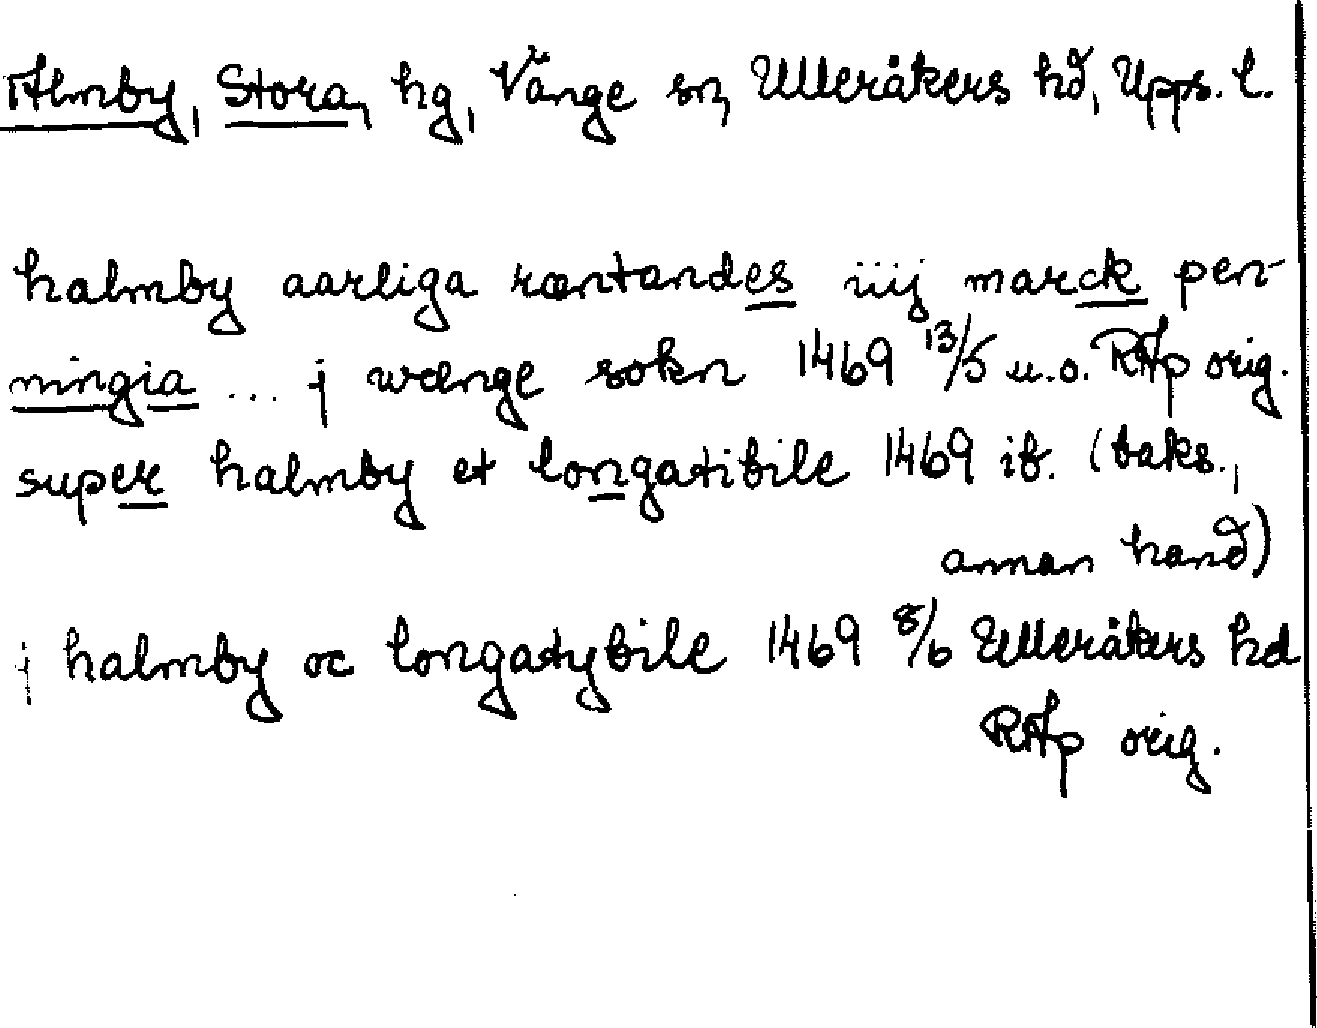 Almby, Stora, hg, Vänge sn, Ulleråkers hd, Upps. l.
halmby aarliga ræntandes iiij marck pen-
ningia ... j wænge sokn 1469 13/5 u.o. RAp orig.
super halmby et longatibile 1469 ib. (baks.,
annan hand)
j halmby oc longatybile 1469 8/6 Ulleråkers hd
RAp orig.